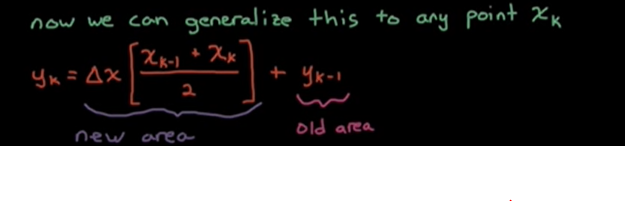 now we can generalize this to any point xₖ
yₖ = Δx [ (xₖ₋₁ + xₖ) / 2 ] + yₖ₋₁
new area
old area